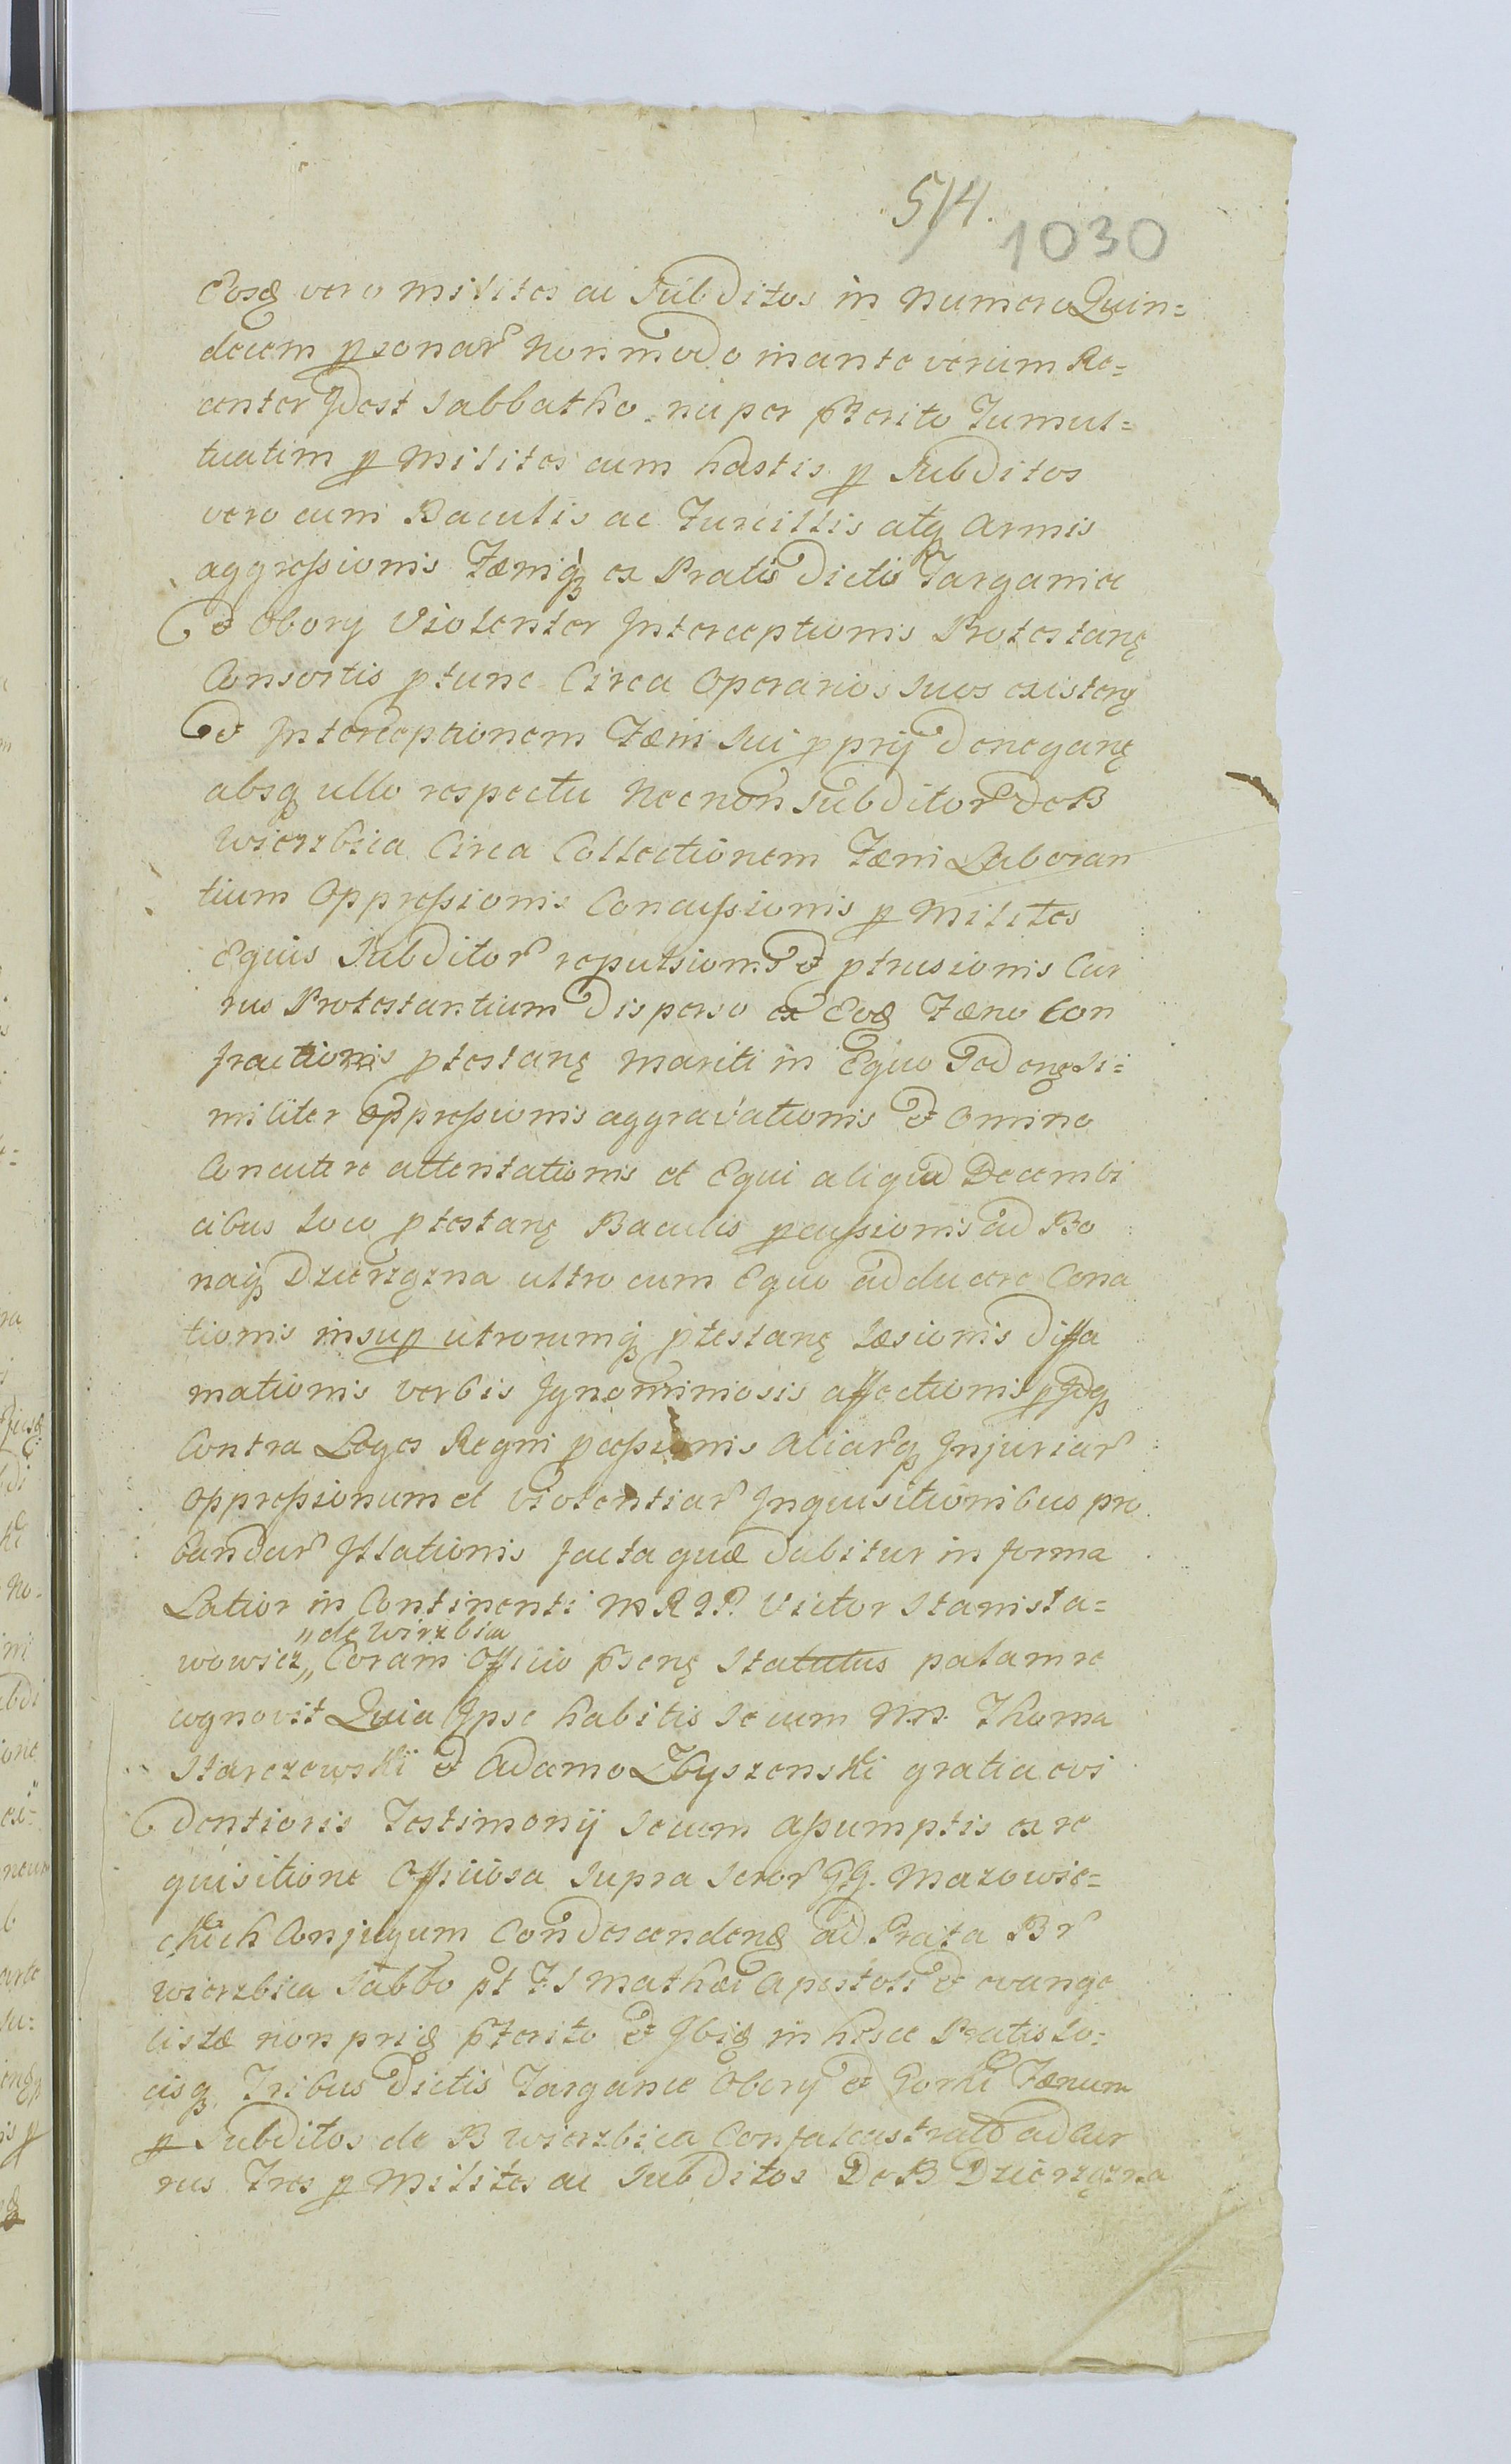 514.
1030
Eosq vero milites ac Subditos in numero Quin=
decem psonar Non modo in ante verum Re=
center Idest Sabbatho nuper pterito Tumul=
tuatim p Milites cum hastis p Subditos
vero cum Baculis ac Furcillis atq Armis
aggressionis Fæniq ex Pratis dictis Targanice
et Obory Violenter Interceptionis Protestanę
Consortis ptunc Circa Operarios suos existenę
et Interceptionem Fæni sui pprij Deneganę
absq ullo respectu Necnon Subditor de B
Wierzbica Circa Collectionem Fæni Laboran
tium Oppressionis Concussionis p Milites
Equis Subditor repulsionis et ptrusionis Cur
rus Protestantium disperso ex Eoq Fæno Con
fractionis ptestanę mariti in Equo Sedenę Si=
militer oppressionis aggravationis et Omino
Concutere attentationis et Equi aliquod Decembi
cibus loco ptestanę Baculis pcussionis ad Bo
naq Dzierzązna ultro cum Equo adducere Cona
tionis insup utrorumq ptestanę læsionis diffa
mationis verbis Ignominiosis affectionis pIdq
Contra Leges Regni pcessionis Aliarq Injuriar
oppressionum et Violentiar Inquisitionibus pro
bandar Illationis facta quæ dabitur in forma
Latior in Continenti M R JP. Victor Stanisla=
"de Wirzbica
wowicz,, Coram Officio psenę Statutus palam re
cognovit Quia Ipse habitis secum NN. Thoma
Starczewski et Adamo Zbyszenski gratia evi
dentioris Testimonij Secum assumptis ex re
quisitione Officiosa Supra Scror GG. Mazowie=
ckich Conjugum Condescendenę ad Prata Br
Wierzbica Sabbo pt F. S Mathæi Apostoli et evange
listæ non priq pterito et Ibiq in hisce Pratis Lo=
cisq Tribus dictis Targance Obory et Gorki Fænum
p Subditos de B Wierzbica Confalcastratu ad Cur
rus Tres p Milites ac Subditos De B Dzierzązna